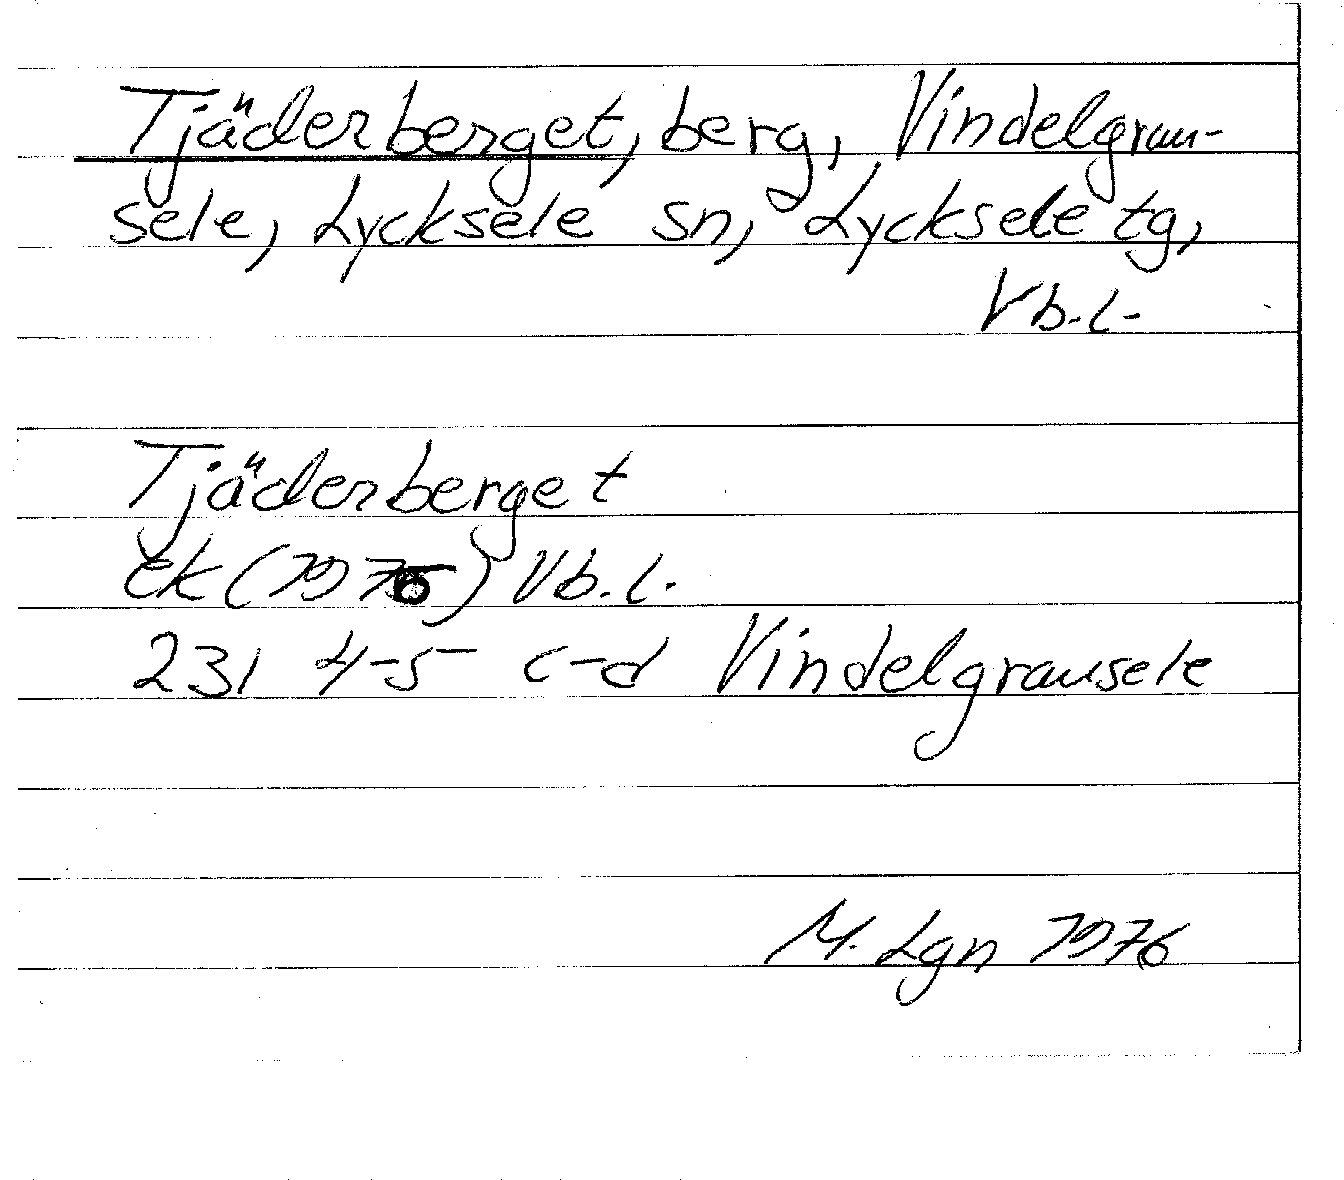 Tjäderberget, berg, Vindelgrau-
sele, Lycksele sn, Lycksele tg,
Vb.l.
Tjäderberget
ek (1976) Vb.l.
231 4-5 c-d Vindelgrausele
M. Lgn 1976